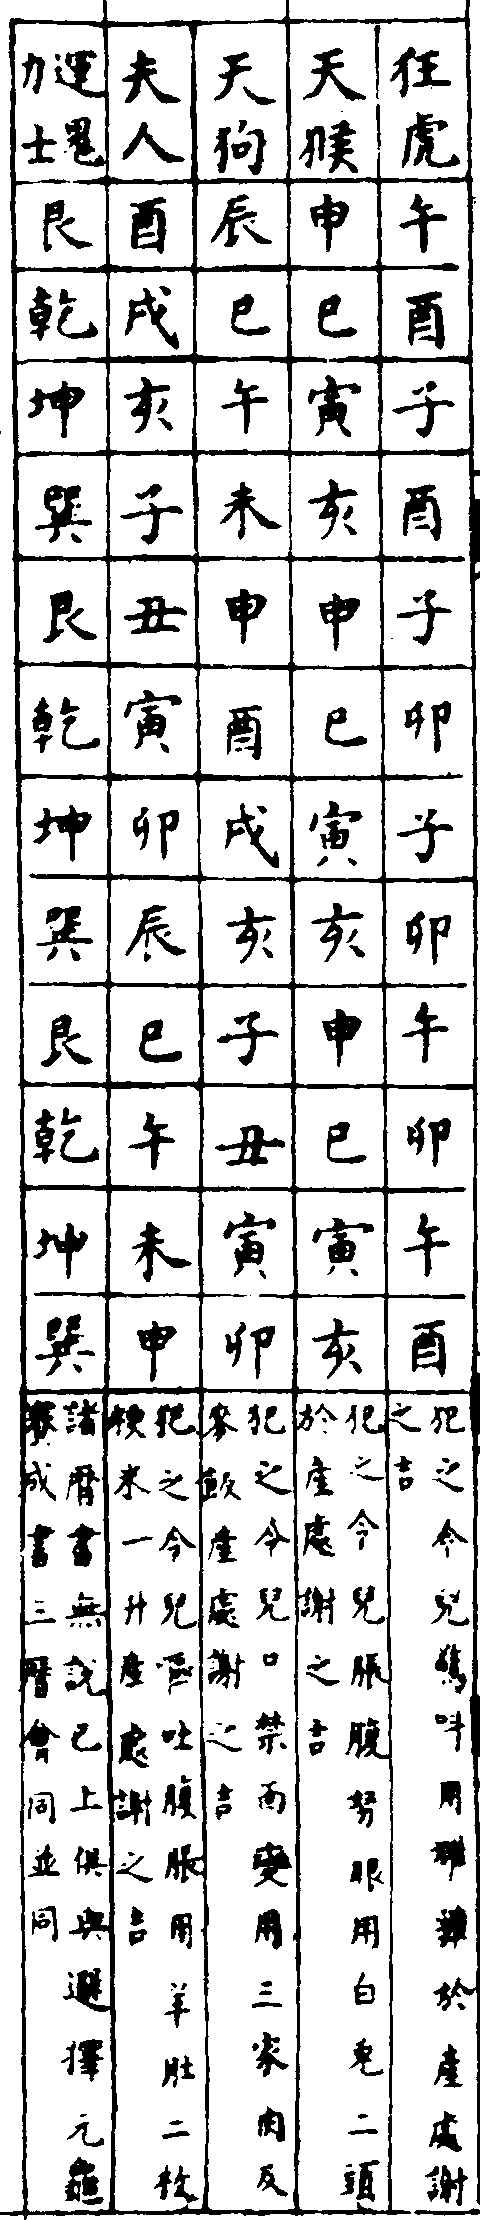 狂虎 午 酉 子 酉 子 卯 子 卯 午 卯 午 酉
犯之令兒驚叫用雄雞於產處謝
之吉
天猴 申 巳 寅 亥 申 巳 寅 亥 申 巳 寅 亥
犯之令兒脹腹努眼用白兔二頭
於產處謝之吉
天狗 辰 巳 午 未 申 酉 戌 亥 子 丑 寅 卯
犯之令兒口禁面變用三家肉及
產處謝之吉
夫人 酉 戌 亥 子 丑 寅 卯 辰 巳 午 未 申
犯之令兒嘔吐腹脹用羊肚二枚
粳米一升產處謝之吉
運鬼力士 艮 乾 坤 巽 艮 乾 坤 巽 艮 乾 坤 巽
諸曆書無說已上俱與選擇元龜
成書三曆會同並同